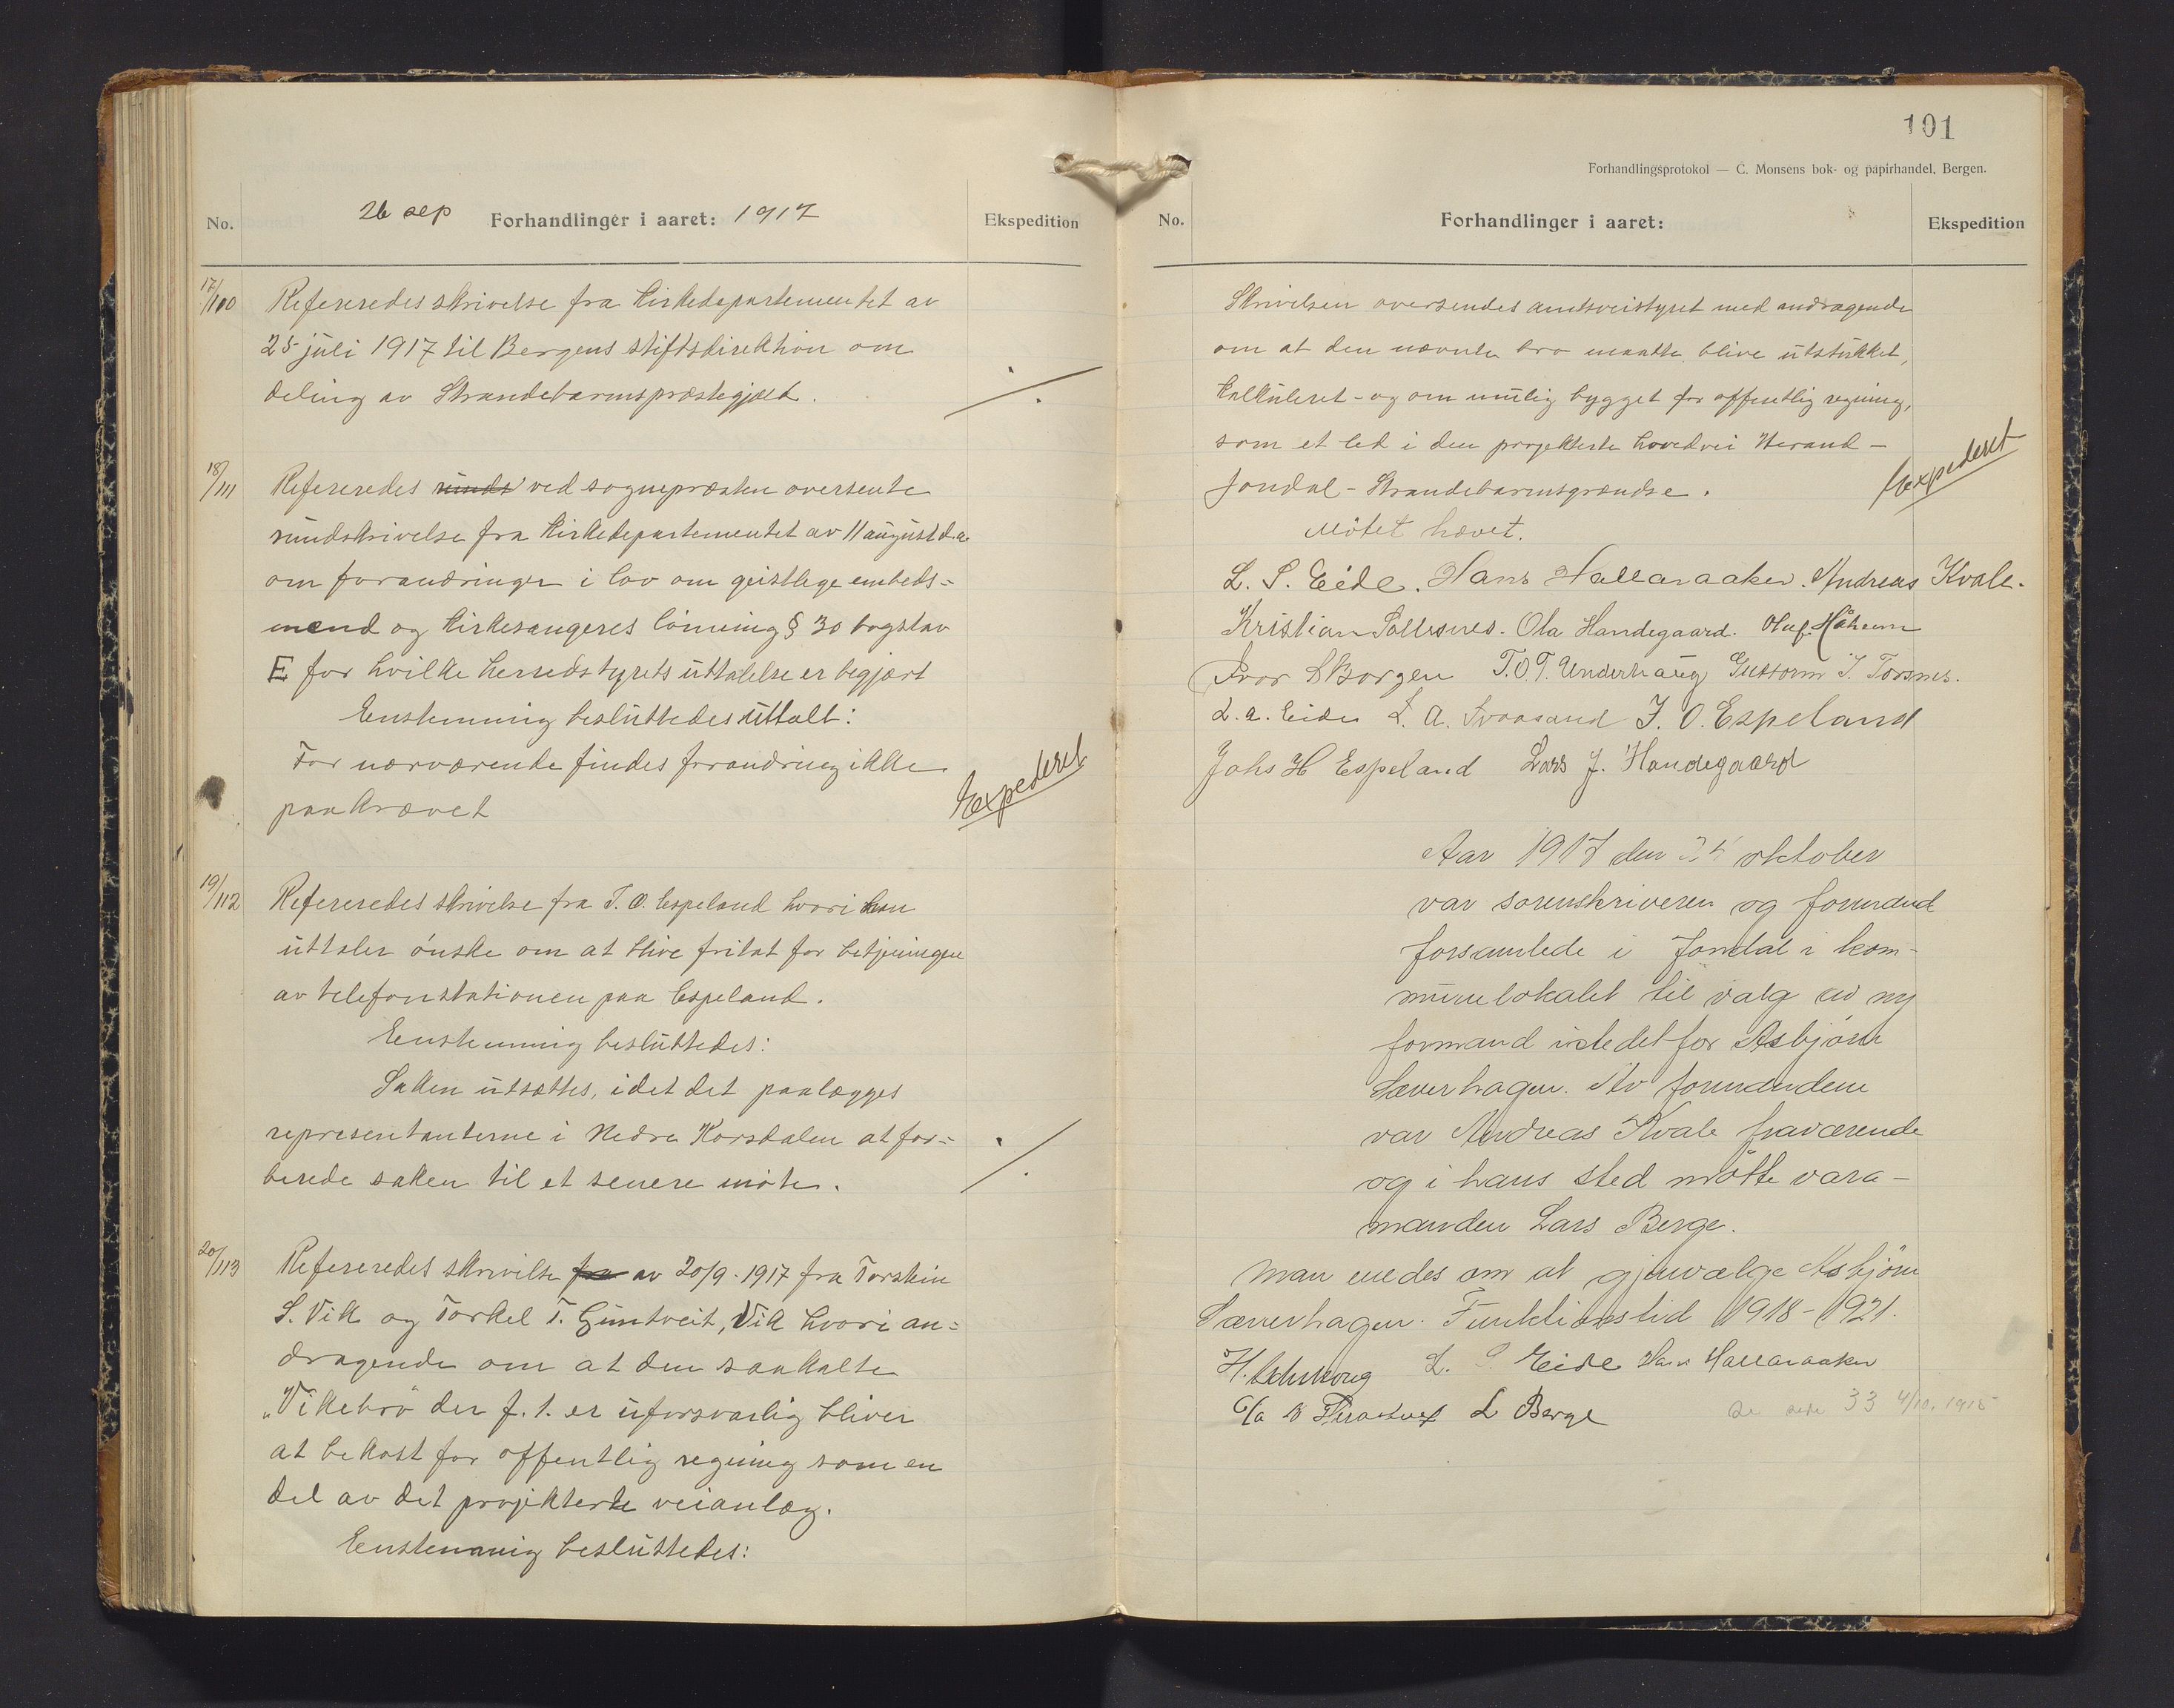 No.
26 sep Forhandlinger i aaret: 1917
Ekspedition
17/110
Refereredes skrivelse fra Kirkedepartementet av
25 juli 1917 til Bergens stiftsdirektion om
deling av Strandebarms præstegjæld.
18/111
Refereredes runds ved sognepræsten oversente
rundskrivelse fra Kirkedepartementet av 11 august d.a.
om forandringer i lov om geistlige embeds=
mænd og Kirkesangeres lönning § 30 bogstav
E for hvilke herredstyrets uttalelse er begjært
Enstemmig besluttedes uttalt:
For nærværende findes forandring ikke
paakrævet
Expederet
19/112
Refereredes skrivelse fra J. O. Espeland hvori han
uttaler önske om at blive fritat for betjeningen
av telefonstationen paa Espeland.
Enstemmig besluttedes:
Saken utsættes, idet det paalægges
representanterne i Nedre Korsdalen at for=
berede saken til et senere möte.
20/113
Refereredes skrivelse fra av 20/9-1917 fra Torstein
S. Vik og Torkel T. Guntveit, Vik hvori an=
dragende om at den saakalte
„Vikebro der f. t. er uforsvarlig bliver
at bekost for offentlig regning som en
del av det projekterte veianlæg.
Enstemmig besluttedes:
101
Forhandlingsprotokol — C. Monsens bok- og papirhandel, Bergen.
No.
Forhandlinger i aaret:
Ekspedition
Skrivelsen oversendes amtsveistyret med andragende
om at den nævnte bro maatte blive utstukket,
kalkuleret - og om mulig bygget for offentlig regning,
som et led i den projekterte hovedvei Herand -
Jondal - Strandebarmsgrændse.
Expederet
Mötet hævet.
L. S. Eide. Hans Hallaraaker. Andreas Kvale.
Kristian Sollesnes. Ola Handegaard. Oluf Håheim
Ivar S Borgen T. O. T. Underhaug Guttorm J. Torsnes.
L. a. Eide L. A. Svaasand J. O. Espeland
Johs H Espeland Lars J. Handegaard
Aar 1917 den 25 oktober
var sorenskriveren og formænd
forsamlede i Jondal i kom-
munelokalet til valg av ny
formand istedetfor Asbjörn
Sæverhagen. Av formændene
var Andreas Kvale fraværende
og i hans sted mötte vara-
manden Lars Berge.
Man enedes om at gjenvælge Asbjörn
Sæverhagen. Funktionstid 1918-1921.
L. S. Eide Hans Hallaraaker
L Berge
33 4/10. 1915